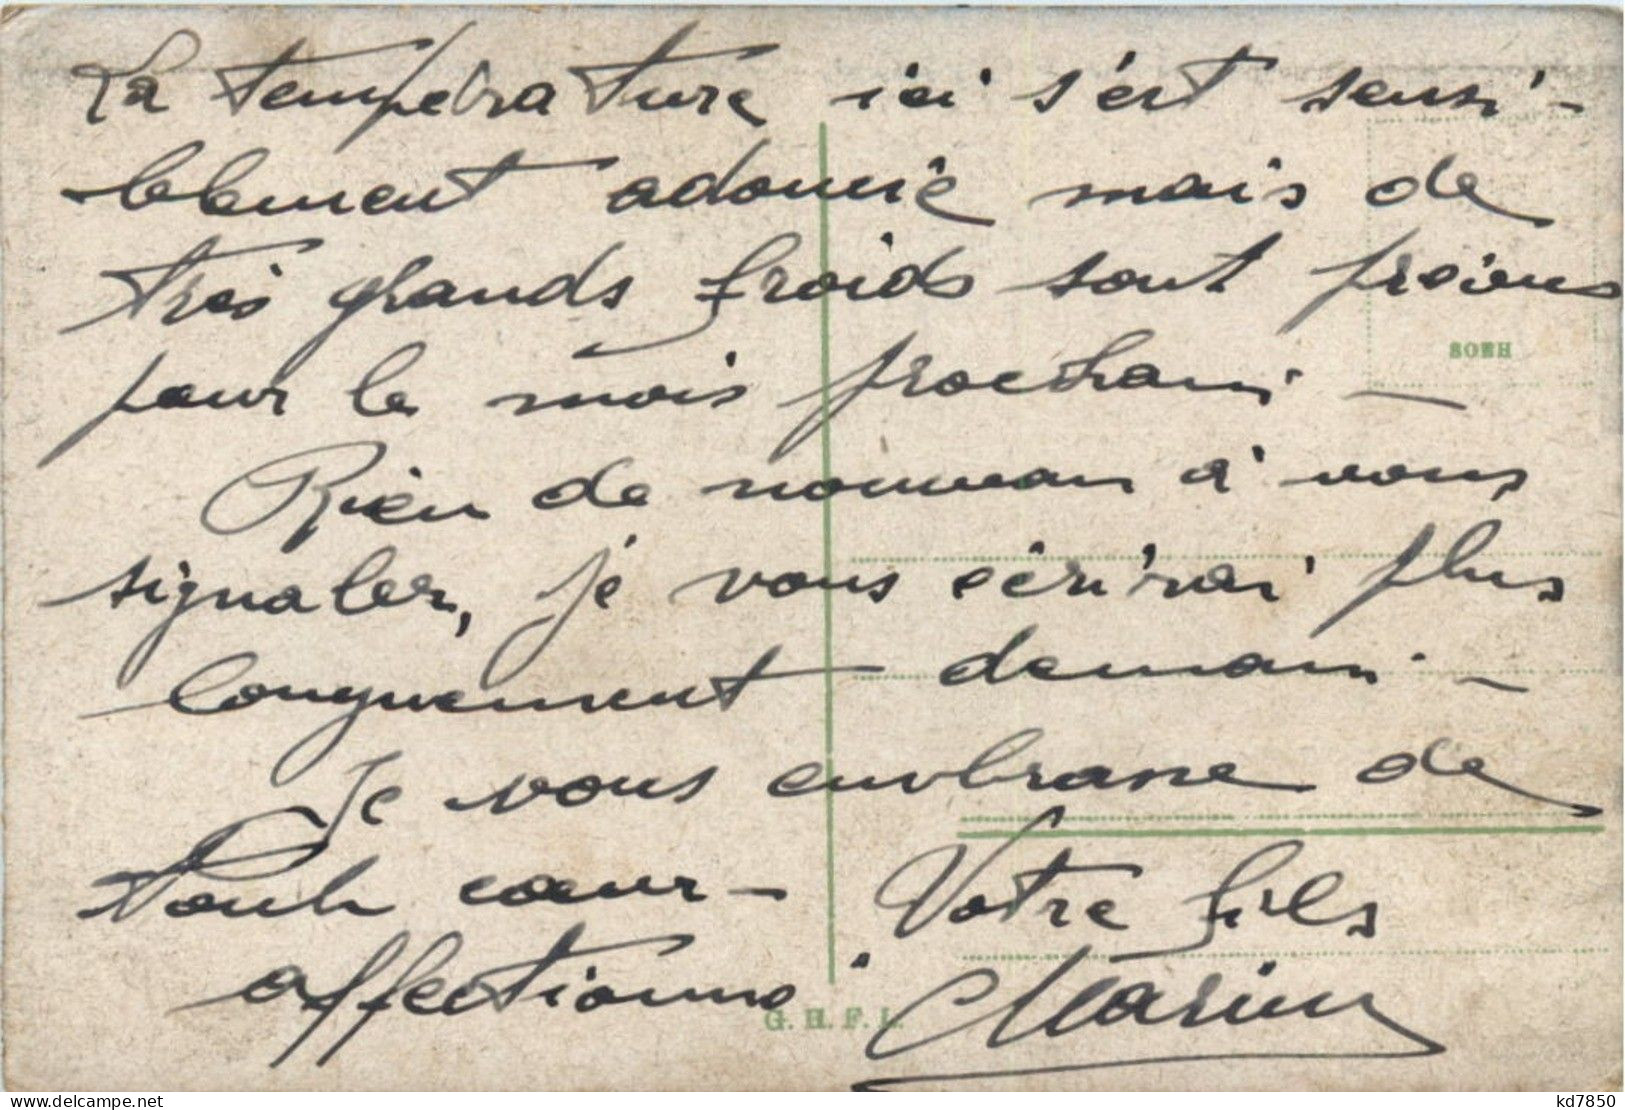 La température ici s'est sensi-
blement adoucie mais de
très grands froids sont prévus
pour le mois prochain —
Rien de nouveau à vous
signaler, je vous écrirai plus
longuement demain —
Je vous embrasse de
tout cœur — Votre fils
affectionné. Marius
BOEH
G. H. F. L.
delcampe.net
kd7850